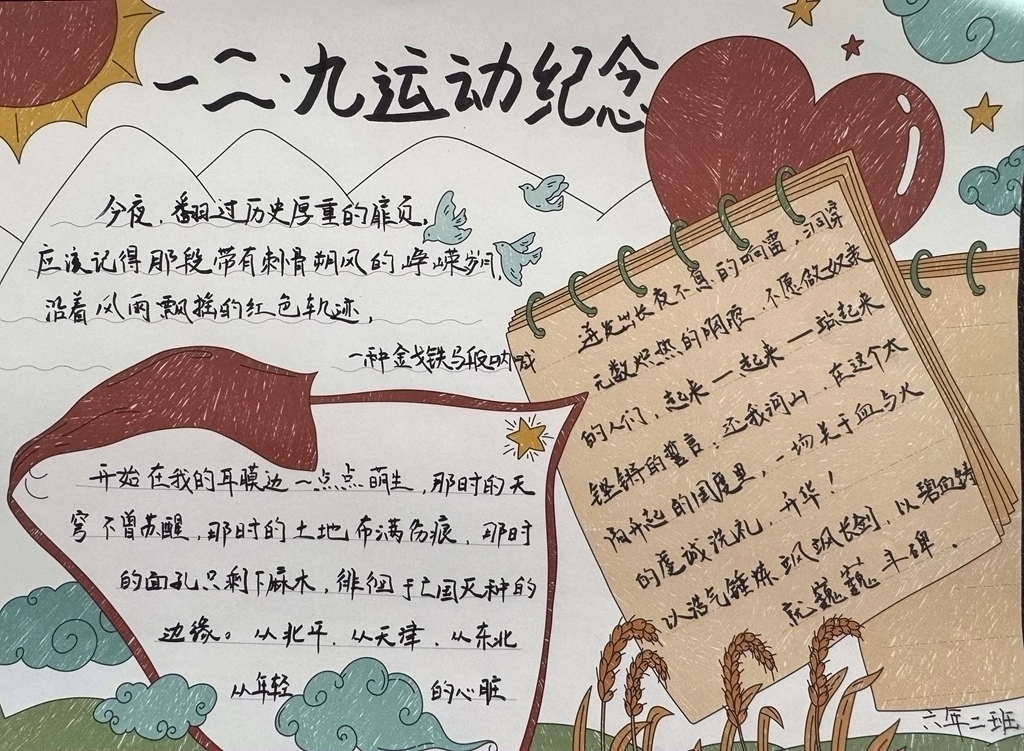 一二·九运动纪念
今夜,翻过历史厚重的扉页,
应该记得那段带有刺骨朔风的峥嵘岁月,
沿着风雨飘摇的红色轨迹,
一种金戈铁马般呐喊
开始在我的耳膜边一点点萌生,那时的天
穹不曾苏醒,那时的土地布满伤痕,那时
的面孔只剩下麻木,徘徊于亡国灭种的
边缘。从北平,从天津,从东北
从年轻的心脏
迸发出长夜不息的响雷,洞穿
无数炽热的胸膛,不愿做奴隶
的人们,起来—起来—站起来
铿锵的誓言:还我河山,在这个太
阳升起的国度里,一场关于血与火
的虔诚洗礼,升华!
以浩气锤炼飒飒长剑,以碧血铸
就巍巍丰碑.
六年二班